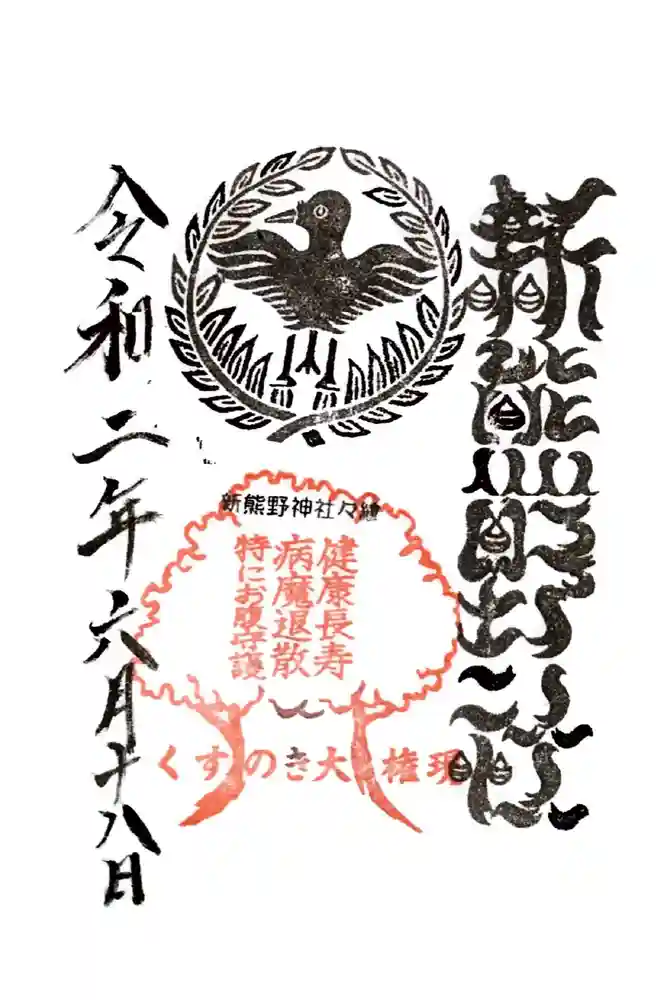 新熊野
新熊野神社
健康長寿
病魔退散
特にお腹守護
くすのき大権現
令和二年六月十八日